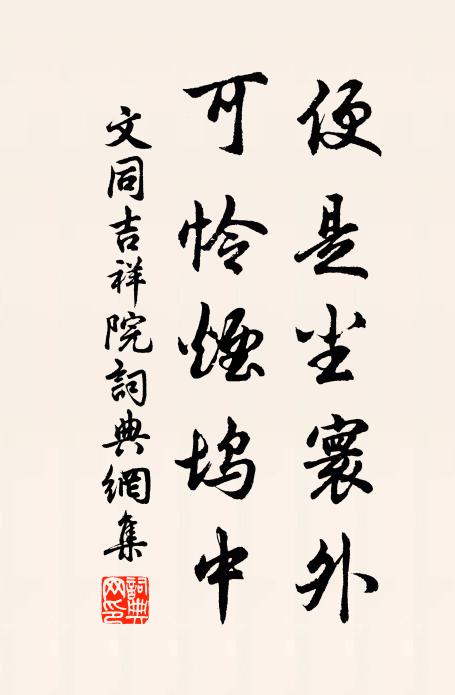 便是尘寰外
可怜煙坞中
文同吉祥院詞典網集
詞典网印